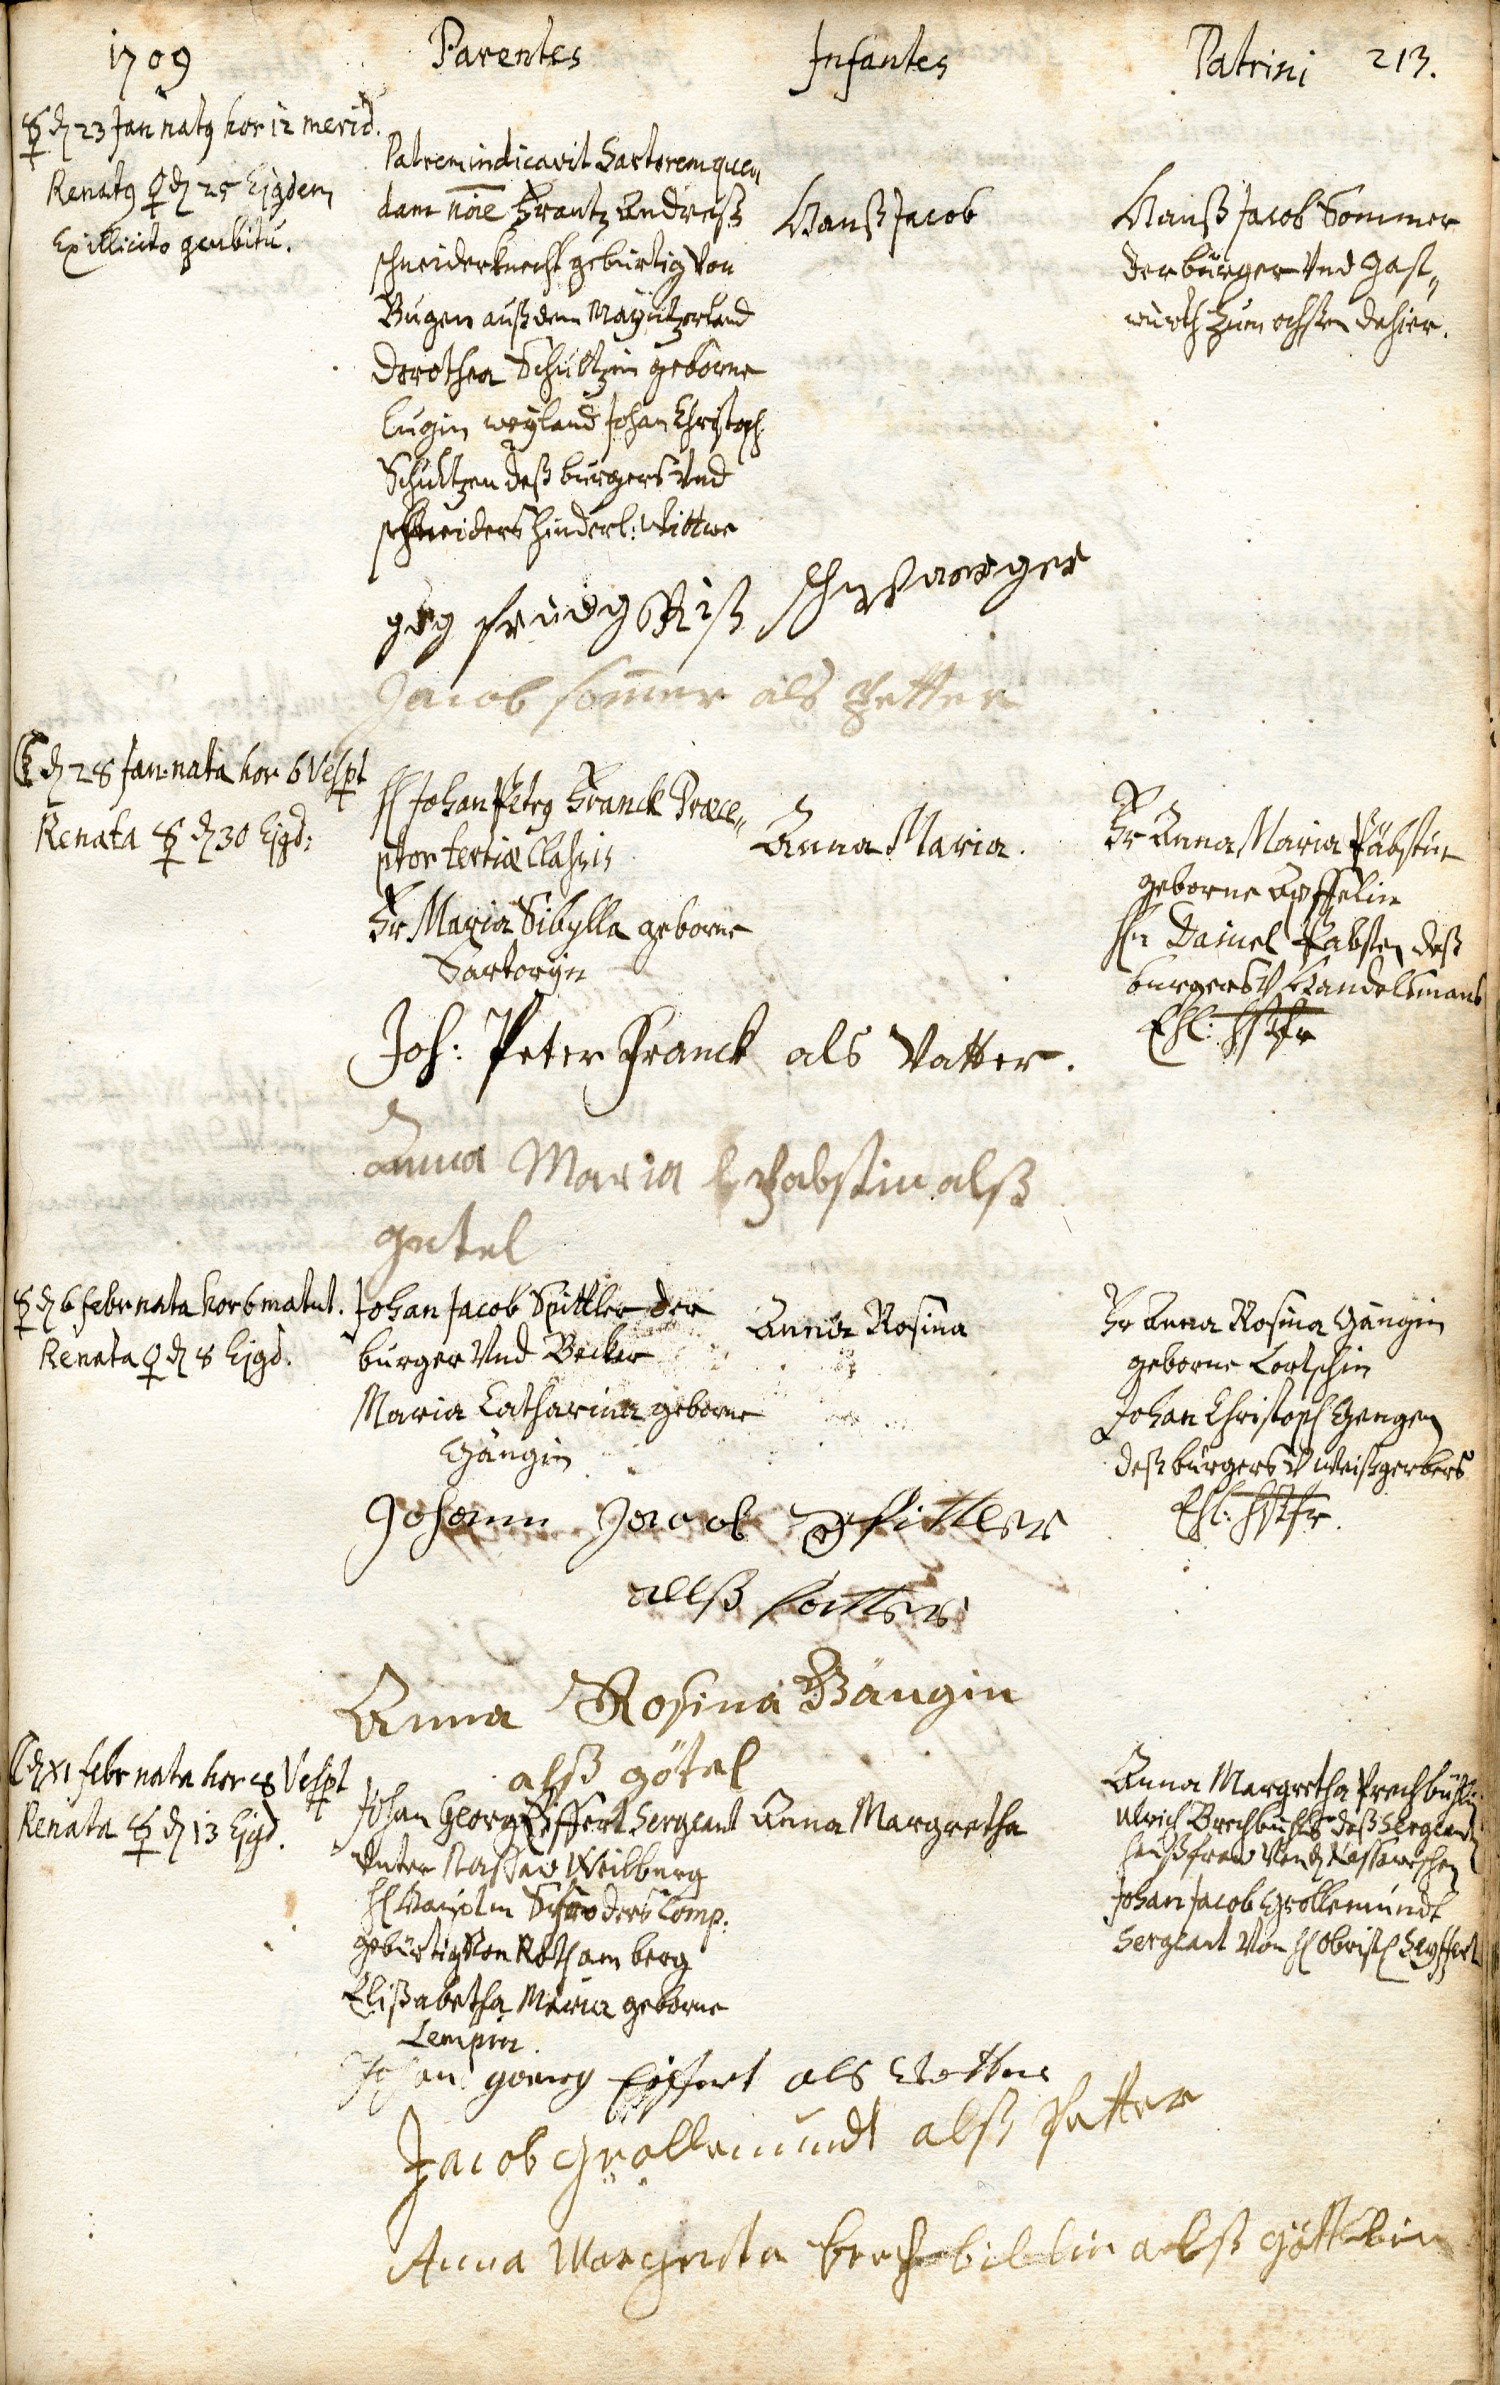 1709 Parentes Infantes Patrini 213.
☿ d 23 Jan natꝰ hor 12 merid.
Renatꝰ ♀ d 25 Ejꝰdem
Ex illicito
Patrem indicavit Sartorem quen„
dam nōie Frantz Andreaß
schneiderknecht gebürtig von
Bugen auß dem Mayntzerland
Dorothea Schultzin geborne
Lugin weyland Johan Christoph
Schultzen deß burgers Vnd
schneiders hinderl: Wittwe
Hanß Jacob
Hanß Jacob Sommer
der burger Vnd Gast„
würth zum ochsen dahier.
Jacob som̄er als Petter
d 28 Jan: nata hor 6 Vespt
Renata ☿ d 30 Ejꝰd:
H Johan Petrꝰ Franck Præce„
ptor tertiæ Classis
Fr Maria Sibylla geborne
Sartorÿn
Anna Maria.
Fr Anna Maria Päbstin
geborne Apffelin
Hn Daniel Pabsten deß
burgers V Handelsmans
Ehl: hßfr
Joh: Peter Franck als Vatter.
Anna Maria Pabstin alß
gotel
☿ d 6 febr nata hor 6 matut.
Renata ♀ d 8 Ejꝰd.
Johan Jacob Spittler der
burger Vnd Becker
Maria Catharina geborne
Gängin
Anna Rosina
Fr Anna Rosina Gängin
geborne Lortschin
Johan Christoph Gengen
deß burgers V Weißgerbers
Ehl: hßfr.
Johann Jacob Spittler
allß fatter
Anna Rosina Gängin
alß götel
☾ d XI febr nata hor 8 Vespt
Renata ☿ d 13 Ejꝰd.
Johan Georg Eiffert Sergeant
Vnter Nassaw Weilburg
H Schröders Comp:
gebürtig Von Roth am berg
Elißabetha Maria geborne
Lempin.
Anna Margretha
Anna Margretha Prechbühlin
Ulrich Brechbuhls deß Sergeanten
haußfraw Von Nassawischen
Johan Jacob Grollemundt
Sergeant Von H Obrist Seyffert
Johan georg Eiffert als Vatter
Jacob Grollemundt alß Petter
Anna Margreta brechbillin alß göttlein